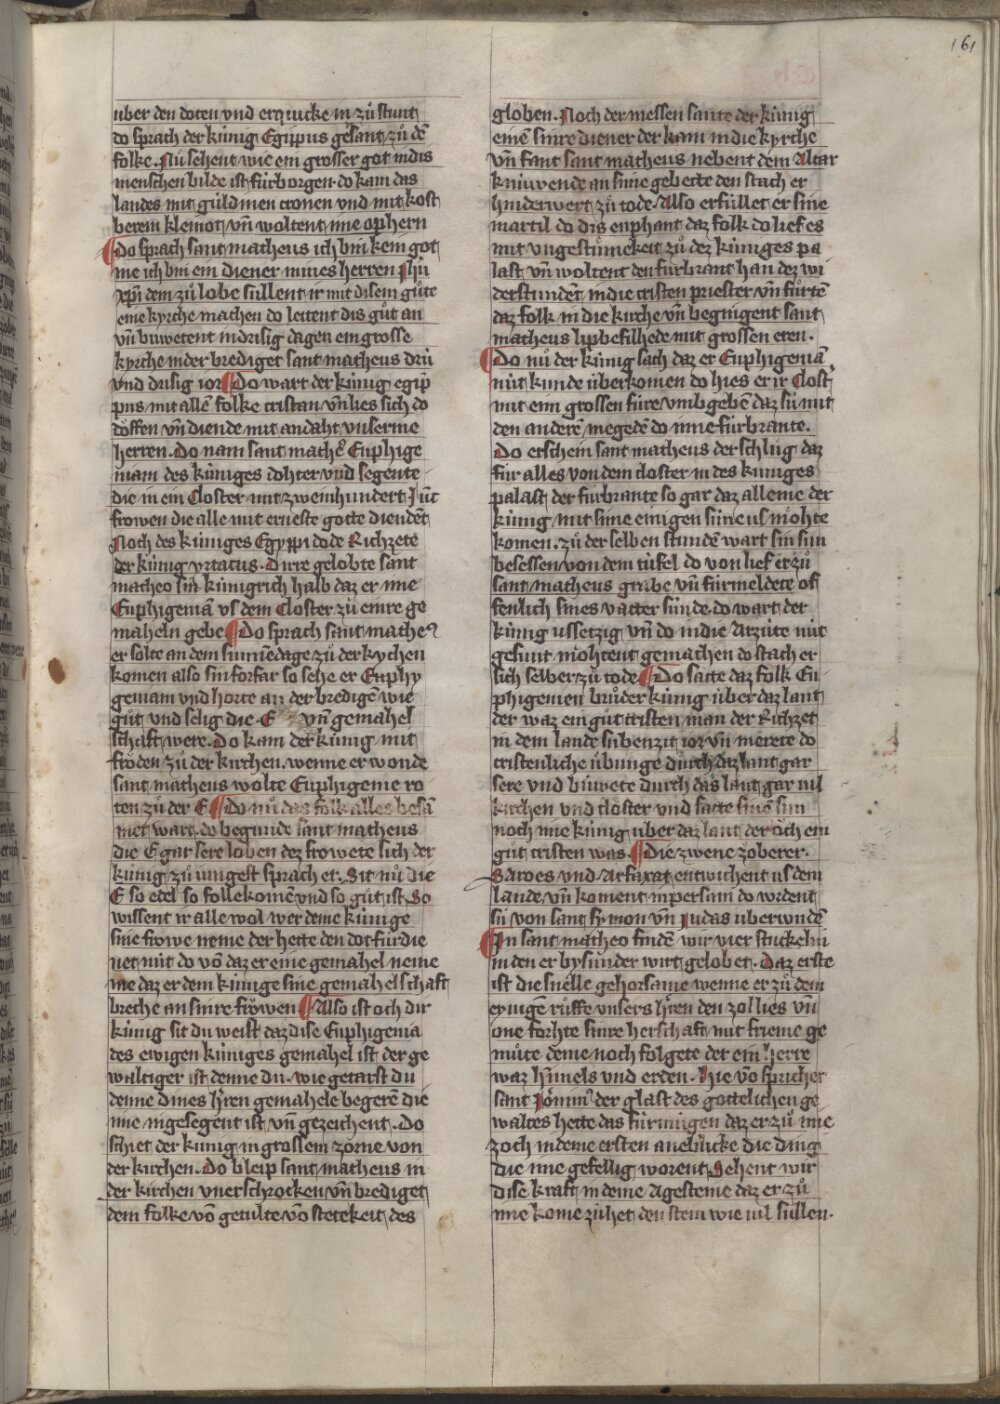 161
uber den doten vnd erquicke in zuͦ stunt
do sprach der kúnig Egippus gesant zuͦ dē
folke. Nuͦ sehent wie ein grosser got in dis
menschen bilde ist fúrborgen. do kam das
landes mit gúldinen cronen vnd mit kost
berem kleinot vn̄ woltent ime ophern
Do sprach sant matheus ich bin kein got
me ich bin ein diener mines herren Jhū
xp̄i dem zuͦ lobe súllent ir mit disem guͦte
eine kyrche machen do leitent dis guͦt an
vn̄ buwetent in drisig dagen ein grosse
kyrche in der brediget sant matheus drú
vnd drisig ior Do wart der kúnig egip
pus mit allē folke cristan vn̄ lies sich do
doͤffen vn̄ diende mit andaht vnserme
herren. Do nam sant mathe9 Euphige
niam des kúniges dohter vnd segente
die in ein Closter mit zweinhundert Jūt
frowen die alle mit erneste gotte diendēt
Noch des kúniges Egyppi dode Richzete
der kúnig yrtacus. Dirre gelobte sant
matheo sin kúnigrich halb daz er ime
Euphigeniā vs dem Closter zuͦ einre ge
maheln gebe Do sprach sant mathe9
er solte an dem sunnēdage zuͦ der kychen
komen also sin forfar so sehe er Euphy
geniam vnd horte an der bredigē wie
guͦt vnd selig die. E vn̄ gemahel
schaft were. Do kam der kúnig mit
froͤden zuͦ der kirchen. wenne er wonde
sant matheus wolte Euphigenie ro
ten zuͦ der E Do nuͦ das folk alles besā
met wart. do begunde sant matheus
die E gar sere loben dez frowete sich der
kúnig zuͦ iungest sprach er. Sit nuͦ die
E so edel so follekomē vnd so guͦt ist So
wissent ir alle wol wer deme kúnige
sine frowe neme der hette den dot fúrdie
net nút do vō daz er eine gemahel neme
me daz er dem kúnige sine gemahelschaft
breche an sinre froͤwen Also ist och dir
kúnig sit du weist daz dise Euphigenia
des ewigen kúniges gemahel ist der ge
waltiger ist denne du. wie getarst du
denne dines h̄ren gemahele begerē die
ime ingesegent ist vn̄ gezeichent. Do
schiet der kúnig in grossem zorne von
der kirchen. Do bleip sant matheus in
der kirchen vnerschrocken vn̄ brediget
dem folke vō gedulte vō stetekeit des
gloͤben. Noch der messen sante der kúnig
einē sinre diener der kam in die kyrche
vn̄ fant sant matheus nebent dem Altar
kniuwende an sime gebette den stach er
hinderwert zuͦ tode. Also erfúllet er sine
martil do dis enphant daz folk do lief es
mit vngestuͤmekeit zuͦ dez kúniges pa
last vn̄ woltent den fúrbrant han dez wi
derstundēt in die cristen priester vn̄ fuͦrtē
daz folk in die kirche vn̄ begingent sant
matheus lipbefilhede mit grossen eren.
Do nuͦ der kúnig sach daz er Euphigeniā
nút kunde úberkomen do hies er ir Clost
mit eim grossen fúre vmb gebē daz sú mit
den anderē megedē do inne fúrbrante.
Do erschein sant matheus der schluͦg daz
fúr alles von dem closter in des kúniges
palast der fúrbrante so gar daz alleine der
kúnig mit sime einigen súne us moͤhte
komen. zuͦ der selben stundē wart sin sun
besessen von dem túfel do von lief er zuͦ
sant matheus grabe vn̄ fúrmeldete of
fenlich sines vatter súnde. do wart der
kúnig ussetzig vn̄ do in die Arzúte nút
gesunt moͤhtent gemachen do stach er
sich selber zuͦ tode Do satte daz folk Eu
phigenien bruͦder kúnig úber daz lant
der waz ein guͦt cristen man der Richzet
in dem lande súbenzit ior vn̄ merete do
cristenliche uͤbunge durch daz lant gar
sere vnd buwete durch das lant gar vil
kirchen vnd closter vnd satte sinē sun
noch ime kúnig uber daz lant der oͤch ein
guͦt cristen was. Die zwene zoberer.
Saroes vnd Arfaxat entwichent us dem
lande vn̄ koment in persiam do wrdent
sú von sant symon vn̄ Judas uberwndē
In sant matheo findē wir vier stuckelin
in den er bysunder wirt gelobet. Daz erste
ist die snelle gehorsame wenne er zuͦ dem
eynigē ruͦffe vnsers h̄ren den zol lies vn̄
one forhte sinre herschaft mit frieme ge
muͤte deme noch folgete der ein herre
waz himels vnd erden. Hie vō sprichet
sant Jeroͤnim9 der glast des goͤttelichen ge
waltes hette das fúrmúgen daz er zuͦ ime
zoch in deme ersten aneblicke die ding
die ime gefellig worent Sehent wir
dise kraft in deme Agesteine daz er zuͦ
ime kome zúhet den stein wie vil súllen.